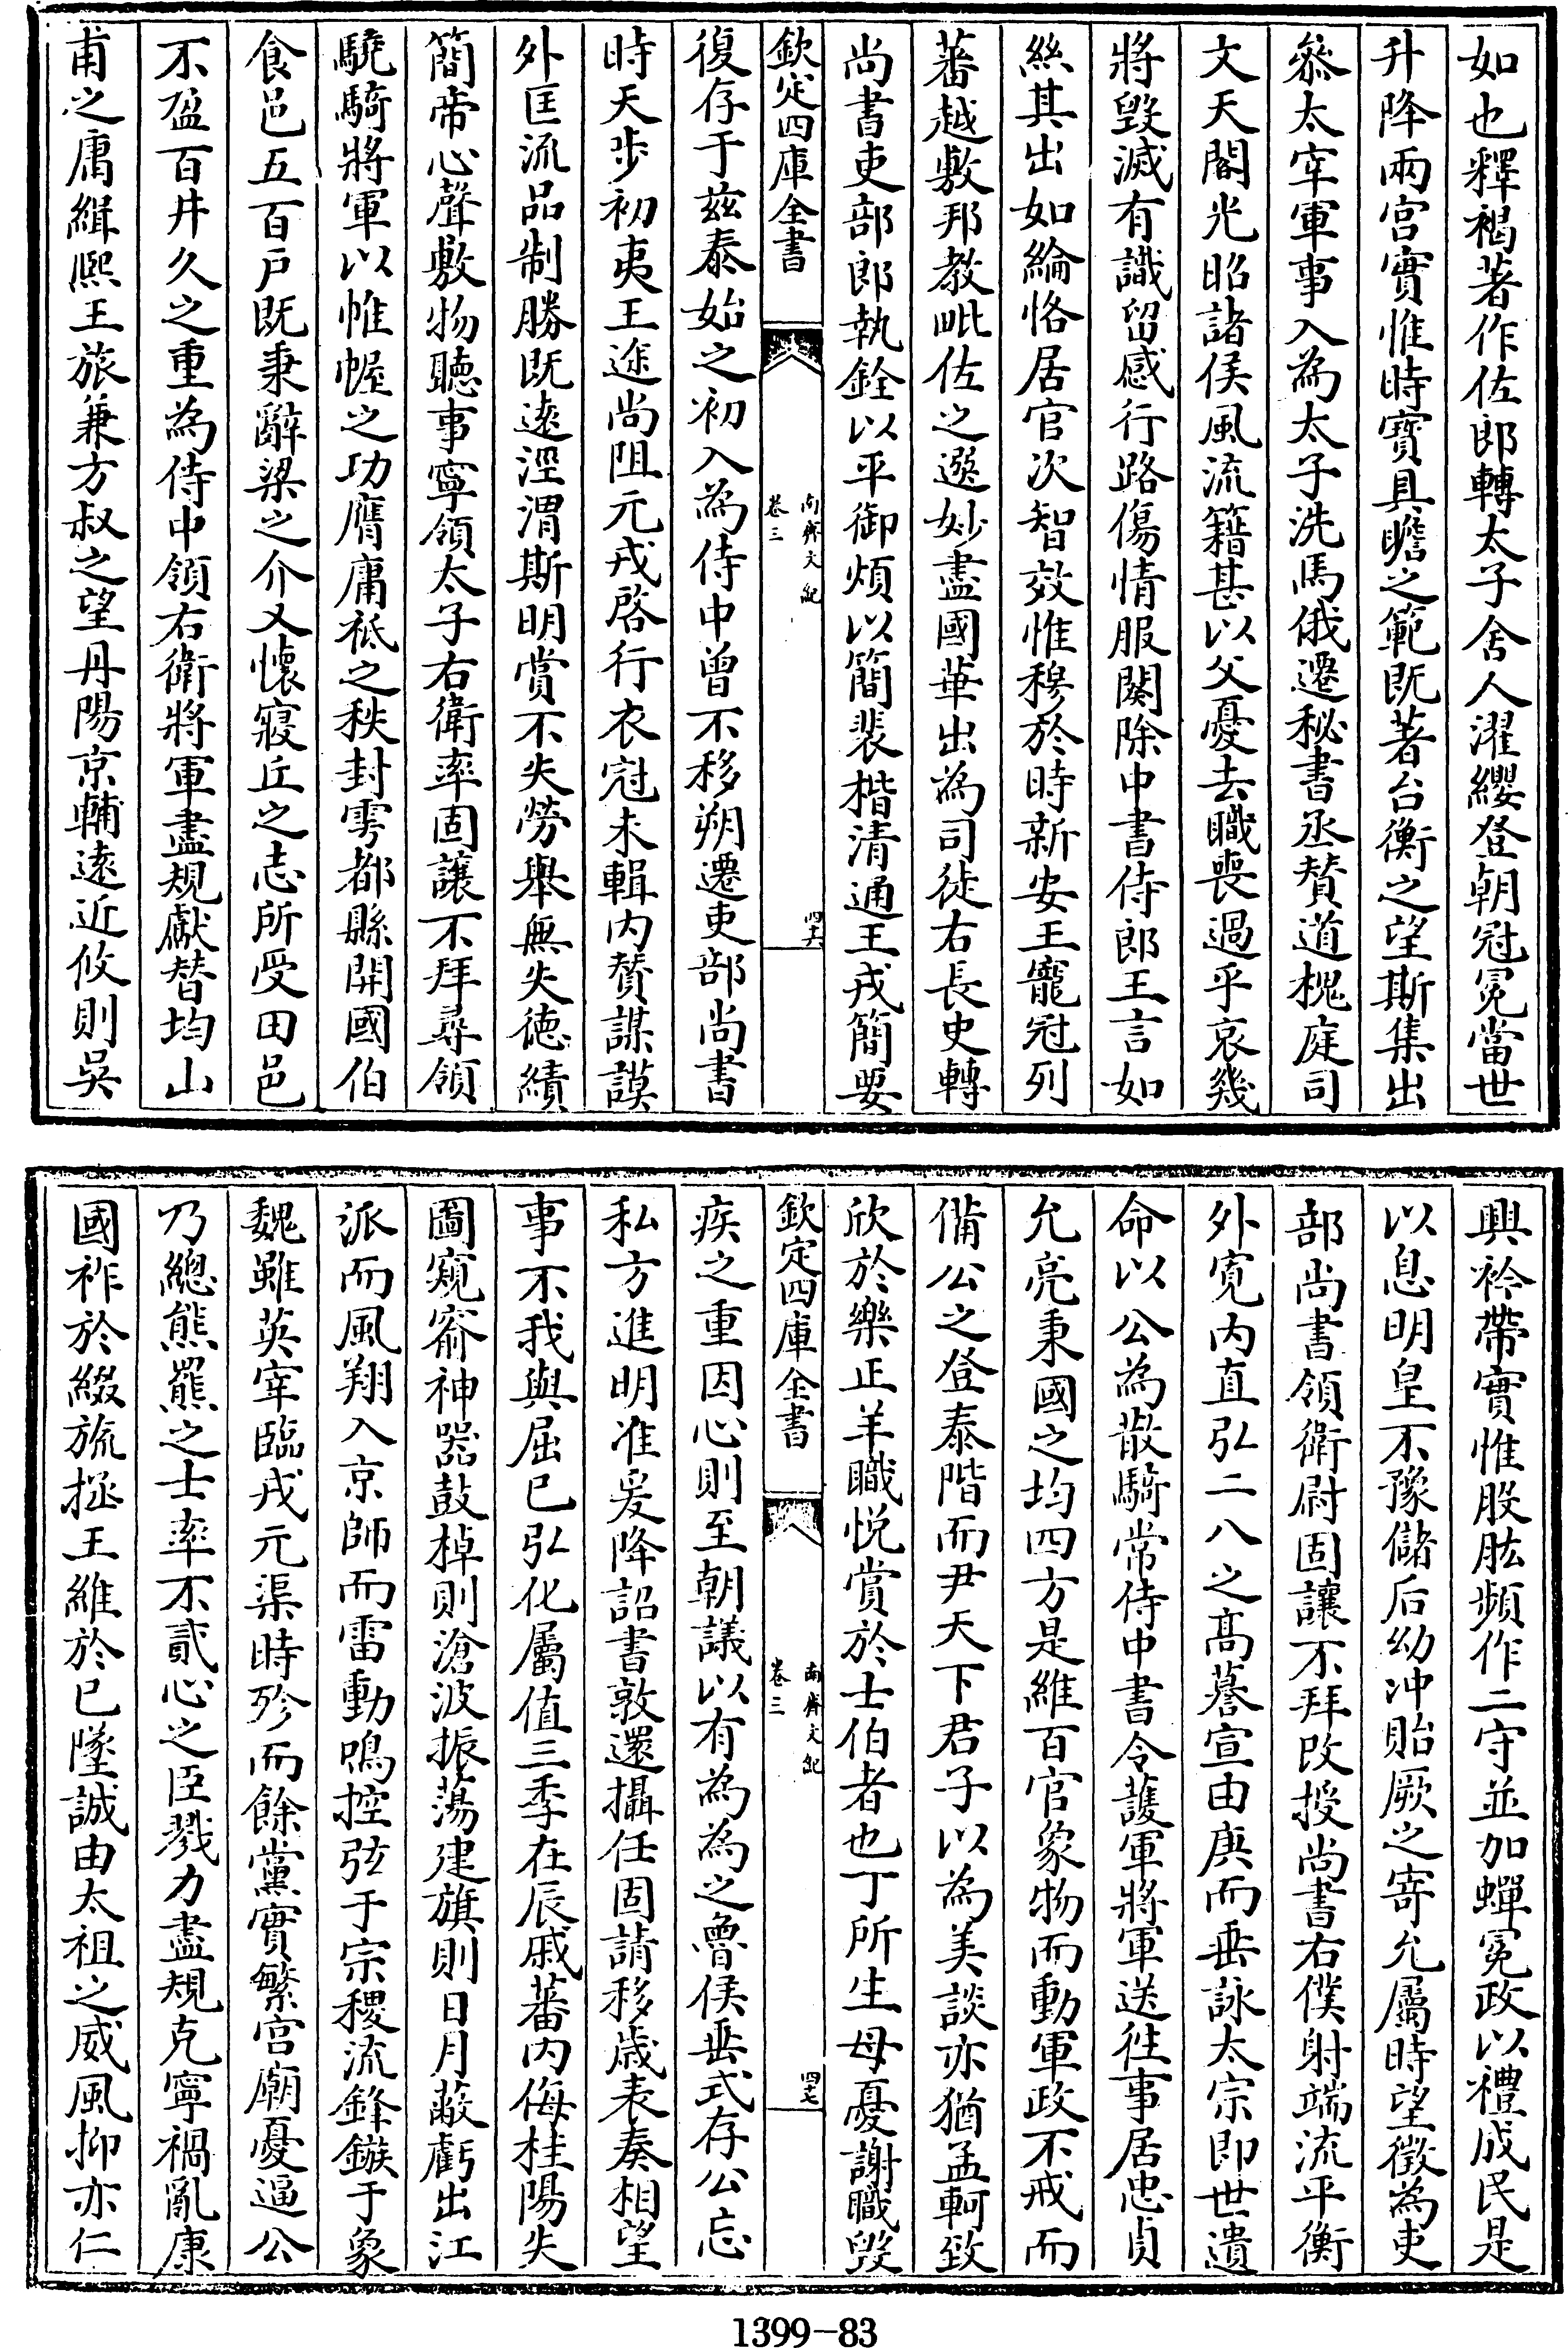 如也釋褐著作佐郎轉太子舍人濯纓登朝冠冕當世
升降兩宫實惟時寳具瞻之範既著台衡之望斯集出
叅太宰軍事入為太子洗馬俄遷秘書丞賛道槐庭司
文天閣光昭諸侯風流籍甚以父憂去職喪過乎哀幾
將毁滅有識留感行路傷情服闋除中書侍郎王言如
絲其出如綸恪居官次智效惟穆於時新安王寵冠列
蕃越敷邦教毗佐之選妙盡國華出為司徒右長史轉
尚書吏部郎執銓以平御煩以簡裴楷清通王戎簡要
欽定四庫全書
南齊文紀
卷三
四十六
復存于兹泰始之初入為侍中曾不移朔遷吏部尚書
時天步初夷王途尚阻元戎啓行衣冠未輯内賛謀謨
外匡流品制勝既逺涇渭斯明賞不失勞舉無失徳績
簡帝心聲敷物聽事寧領太子右衛率固讓不拜尋領
驍騎將軍以帷幄之功膺庸祗之秩封雩都縣開國伯
食邑五百户既秉辭梁之介又懐寢丘之志所受田邑
不盈百井久之重為侍中領右衛將軍盡規獻替均山
甫之庸緝熙王旅兼方叔之望丹陽京輔逺近攸則吳
興衿帶實惟股肱頻作二守並加蟬冕政以禮成民是
以息明皇不豫儲后幼冲貽厥之寄允屬時望徵為吏
部尚書領衛尉固讓不拜改授尚書右僕射端流平衡
外寛内直弘二八之髙謩宣由庚而垂詠太宗即世遺
命以公為散騎常侍中書令護軍將軍送往事居忠貞
允亮秉國之均四方是維百官象物而動軍政不戒而
備公之登泰階而尹天下君子以為美談亦猶孟軻致
欣於樂正羊職悦賞於士伯者也丁所生母憂謝職毁
欽定四庫全書
南齊文紀
卷三
四十七
疾之重因心則至朝議以有為為之魯侯垂式存公忘
私方進明准爰降詔書敦還攝任固請移歲表奏相望
事不我與屈已弘化屬值三季在辰戚蕃内侮桂陽失
圖窺窬神器鼓棹則滄波振蕩建旗則日月蔽虧出江
派而風翔入京師而雷動鳴控弦于宗稷流鋒鏃于象
魏雖英宰臨戎元渠時殄而餘黨實繁宫廟憂逼公
乃緫熊羆之士率不貳心之臣戮力盡規克寧禍亂康
國祚於綴旒拯王維於已墜誠由太祖之威風抑亦仁
1399-83